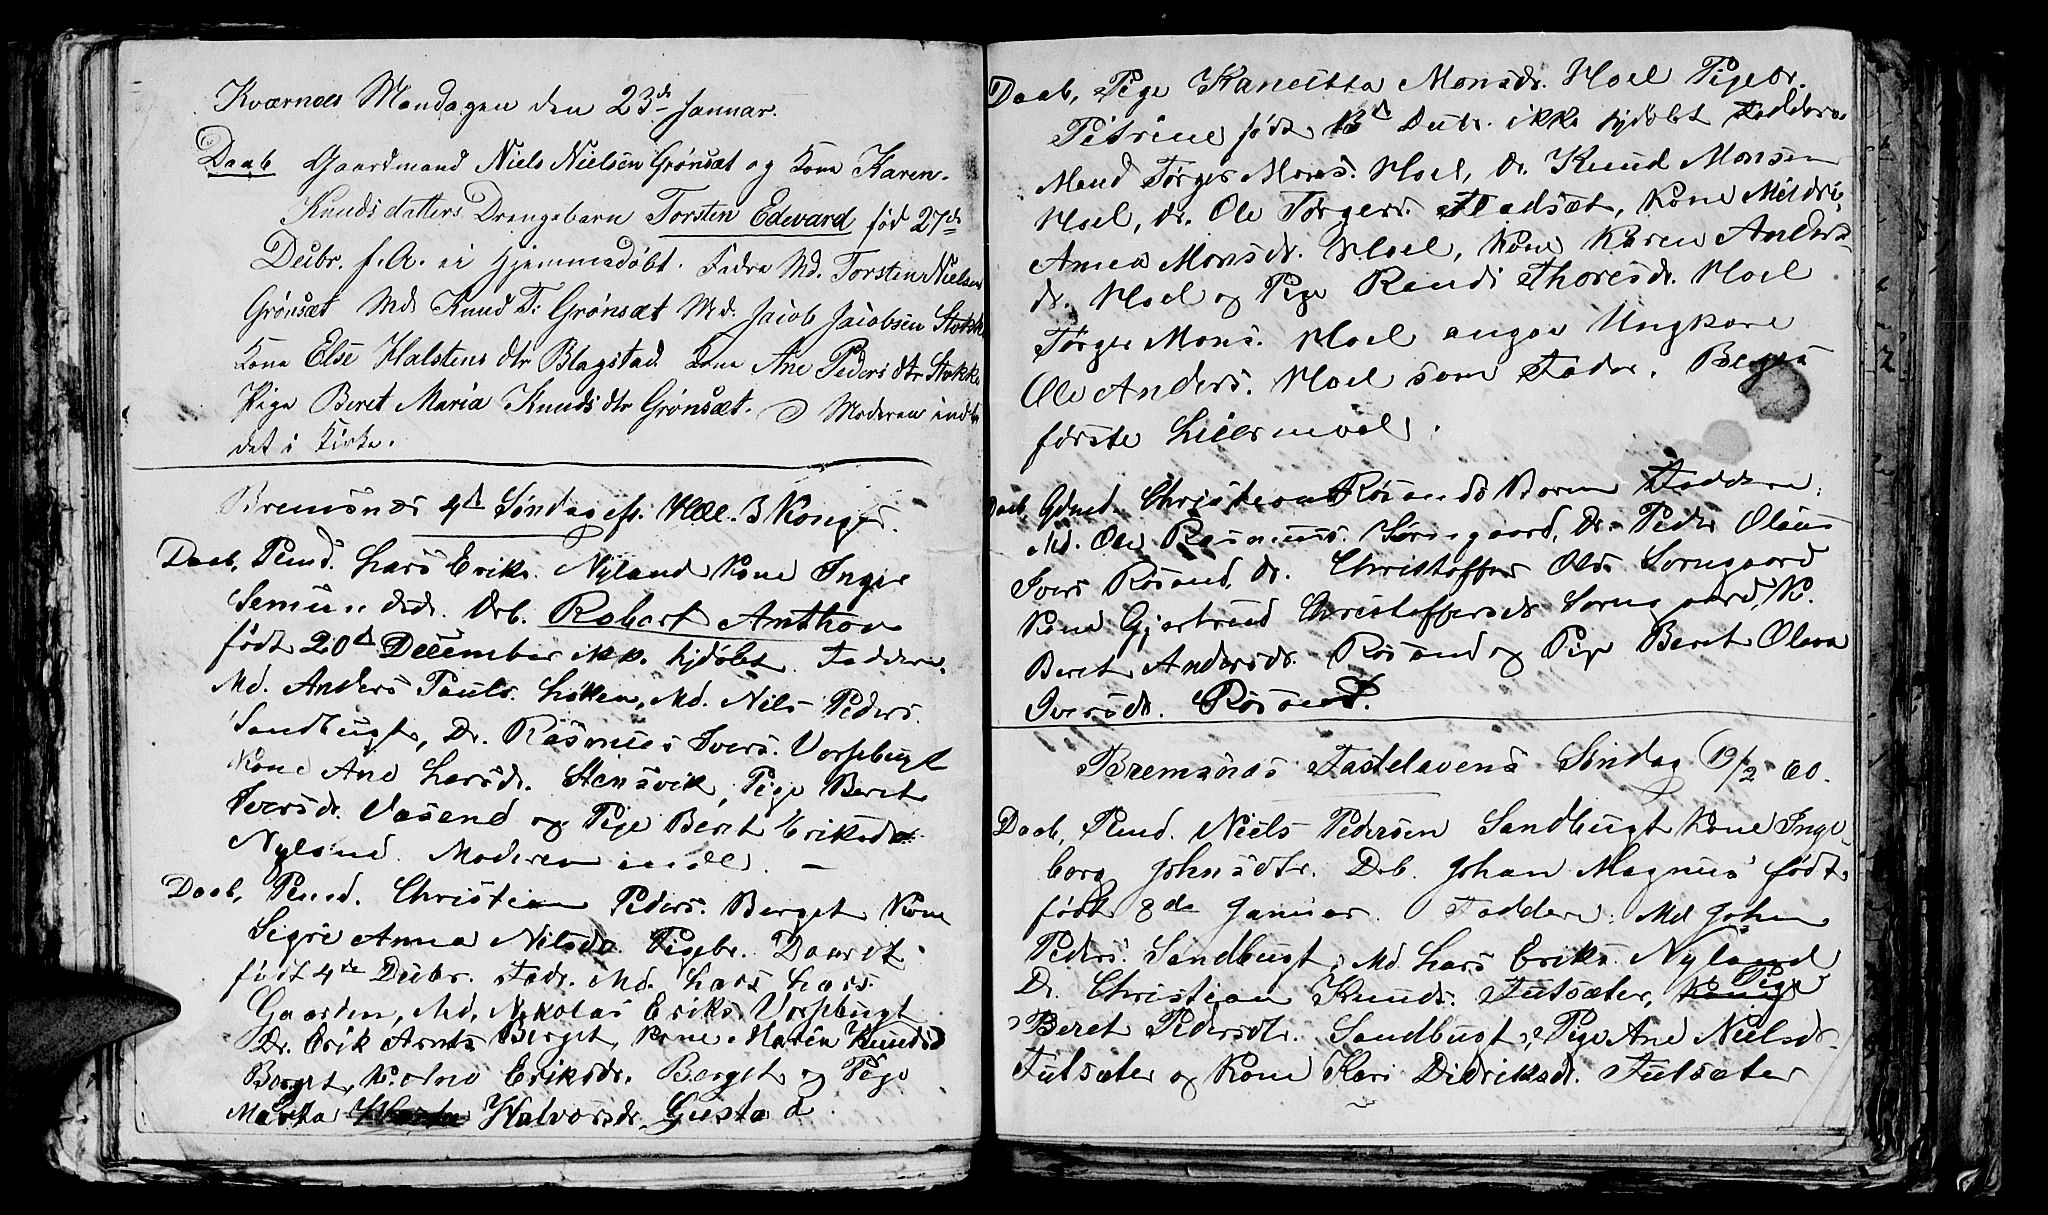 Kværnæs Mandagen den 23de Januar.
Daab Gaardmand Niels Nielsen Grønsæt og Kone Karen
Knudsdatters Drengebarn Torsten Edward fød 27de
Decbr. f. A. ei hjemmedøbt. Fadre Md. Torsten Nielsen
Grønsæt Md. Knud T: Grønsæt Md. Jacob Jacobsen Stokke
Kone Else Halstensdtr Blagstad Kone Ane Pedersdtr Stokke
Pige Beret Maria Knudsdtr Grønsæt. Moderen indle
det i Kirke.
Bremsnæs 4de Søndag eft. Hell. 3 Konger.
Daab, Pmd. Lars Eriks. Nyland Kone Inger
Semundsdr. Drb. Robert Anthon
født 20de December ikke hjdøbt. Faddere.
Md. Anders Pauls. Løken, Md. Nils Peders.
Sandbugt, Dr. Rasmus Ivers. Vorpebugt
Kone Ane Larsdr. Stensvik, Pige Beret
Iversdr. Vasend og Pige Beret Eriksdr
Nyland. Moderen indl.
Daab, Pmd. Christian Peders. Berget Kone
Segri Anna Nilsdr Pigebr. Daaret
født 4de Decbr. Fadr. Md. Lars Lars.
Gaarden, Md. Nikolai Eriks. Vorpebugt
Dr. Erik Arnts Berget, Kone Maren Knudsd
Berget, K. Ane Eriksdr. Berget og Pige
Marta Halvorsdr. Gustad.
Daab, Pige Kanutta Monsdr. Hoel Pigebr.
Petrine født Decbr. ikke hjdøbt Faddere
Mand Tørger Mons. Hoel, Dr. Knud Monsen
Hoel, Dr. Ole Tørgers. Fladsæt, Kone Mildri
Anna Monsdr. Hoel, Kone Karen Anders
dr. Hoel og Pige Randi Thoresdr. Hoel.
Tørger Mons. Hoel angav Ungkarl
Ole Anders. Hoel som Fader. Begges
første Leiermaal.
Daab, Gdmd. Christian Røsands Barn Faddere:
Md. Ole Rasmus. Sørugaard, Dr. Peder Olaus
Ivers Røsand, Dr. Christoffer Ols. Sørugaard
Kone Gjertrud Christoffersdr Sørugaard, K.
Beret Andersdr. Røsand og Pige Beret Olava
Iversdr. Røsand.
Bremsnæs Fastelavens Søndag 19/2 60.
Daab, Pmd. Niels Pedersen Sandbugt Kone Inge
borg Johnsdtr. Drb. Johan Magnus født
født 8de Januar. Faddere: Md John
Peders. Sandbugt, Md Lars Eriks. Nyland
Dr. Christian Knuds. Futsæter, Pige
Beret Pedersdtr. Sandbugt, Pige Ane Nielsdr
Futsæter og Kone Kari Didriksdr. Futsæter